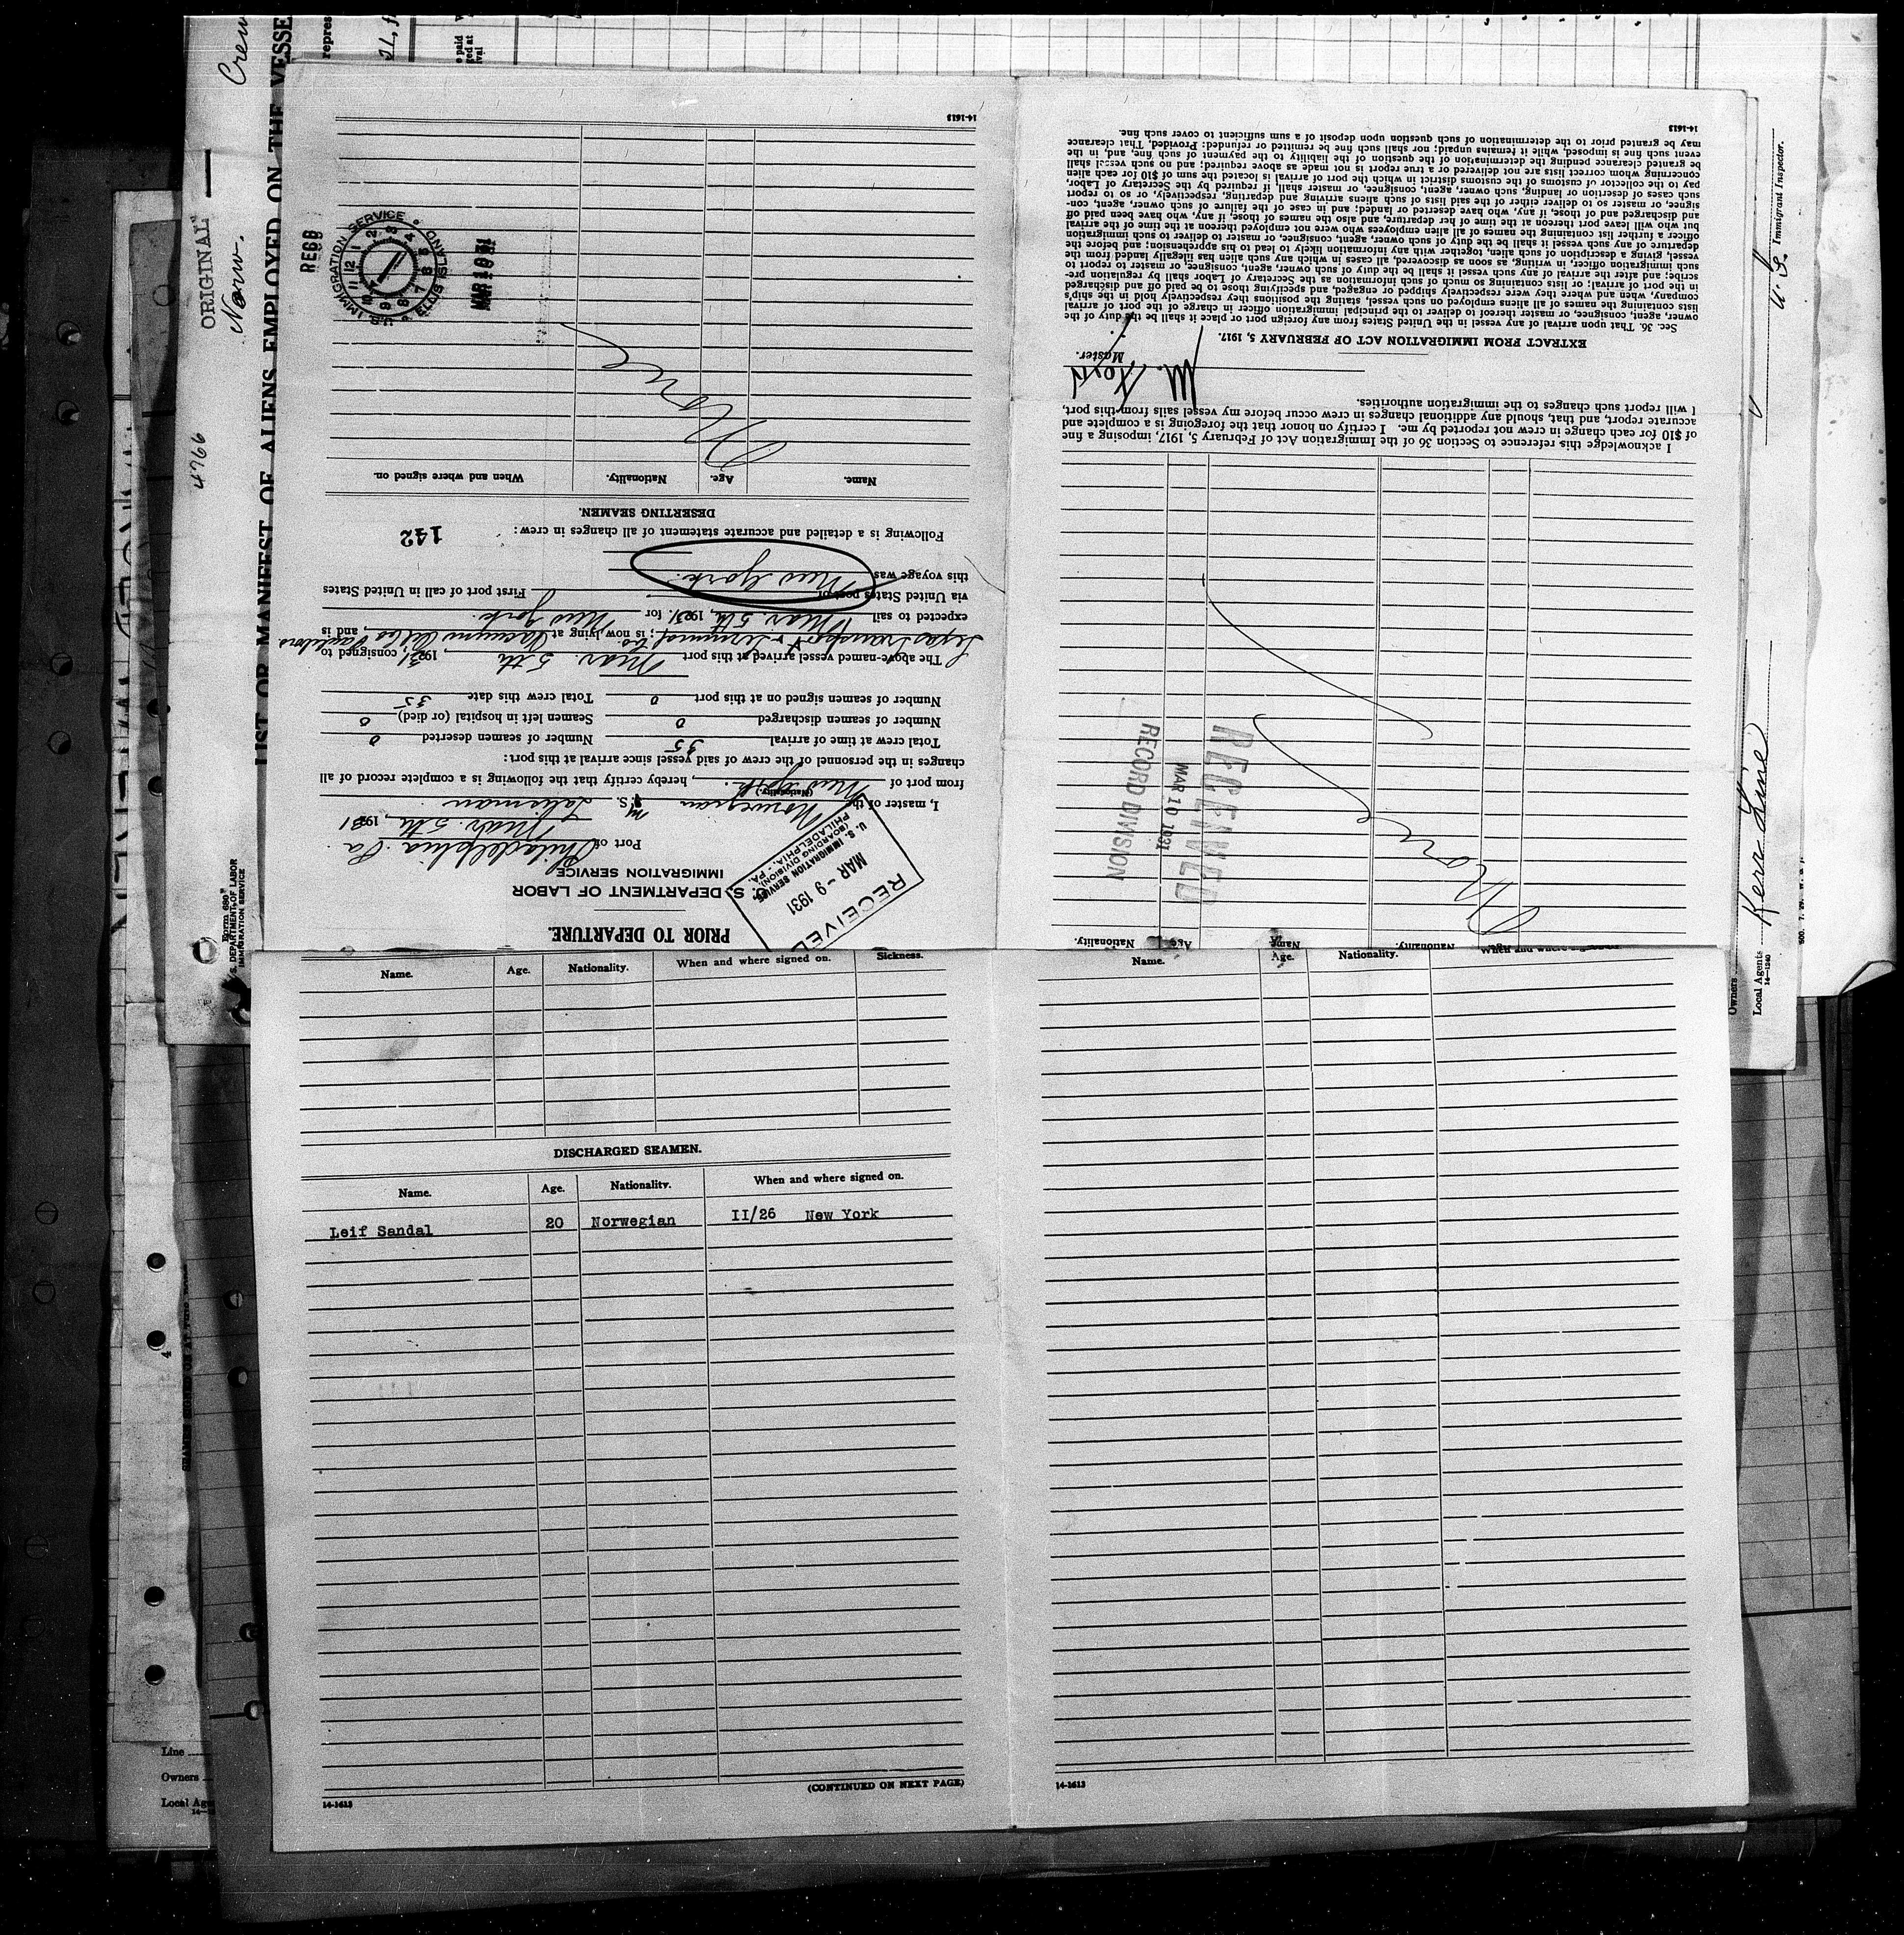 ORIGINAL"
Norw.
Crew
4766
LIST OR MANIFEST OF ALIENS EMPLOYED ON THE VESSE
Form 680"
U. S. DEPARTMENT OF LABOR
IMMIGRATION SERVICE
PRIOR TO DEPARTURE.
U. S. DEPARTMENT OF LABOR
IMMIGRATION SERVICE
RECEIVED
MAR - 9 1931
U. S. IMMIGRATION SERVICE
(BOARDING DIVISION)
PHILADELPHIA, PA.
Port of Philadelphia Pa.
Mar. 5th, 1931
I, master of the Norwegian M.S. Taluman
(Nationality.)
from port of New York, hereby certify that the following is a complete record of all
changes in the personnel of the crew of said vessel since arrival at this port:
Total crew at time of arrival 35 Number of seamen deserted 0
Number of seamen discharged 0 Seamen left in hospital (or died) 0
Number of seamen signed on at this port 0 Total crew this date 35
The above-named vessel arrived at this port Mar. 5th, 1931, consigned to
Transport & Terminal Co; is now lying at, and is
expected to sail Mar. 5th, 1931 for New York.
via United States port of First port of call in United States
this voyage was New York.
Following is a detailed and accurate statement of all changes in crew:
142
DESERTING SEAMEN.
Name. Age. Nationality. When and where signed on.
None
U.S. IMMIGRATION SERVICE
ELLIS ISLAND
MAR 10 1931
14-1613
Nationality. Age Name Nationality. When and where signed on
None
RECEIVED
MAR 10 1931
RECORD DIVISION
I acknowledge this reference to Section 36 of the Immigration Act of February 5, 1917, imposing a fine
of $10 for each change in crew not reported by me. I certify on honor that the foregoing is a complete and
accurate report, and that, should any additional changes in crew occur before my vessel sails from this port,
I will report such changes to the immigration authorities.
Master.
EXTRACT FROM IMMIGRATION ACT OF FEBRUARY 5, 1917.
Sec. 36. That upon arrival of any vessel in the United States from any foreign port or place it shall be the duty of the
owner, agent, consignee, or master thereof to deliver to the principal immigration officer in charge of the port of arrival
lists containing the names of all aliens employed on such vessel, stating the positions they respectively hold in the ship's
company, when and where they were respectively shipped or engaged, and specifying those to be paid off and discharged
in the port of arrival; or lists containing so much of such information as the Secretary of Labor shall by regulation pre-
scribe; and after the arrival of any such vessel it shall be the duty of such owner, agent, consignee, or master to report to
such immigration officer, in writing, as soon as discovered, all cases in which any such alien has illegally landed from the
vessel, giving a description of such alien, together with any information likely to lead to his apprehension; and before the
departure of any such vessel it shall be the duty of such owner, agent, consignee, or master to deliver to such immigration
officer a further list containing the names of all alien employees who were not employed thereon at the time of the arrival
but who will leave port thereon at the time of her departure, and also the names of those, if any, who have been paid off
and discharged and of those, if any, who have deserted or landed; and in case of the failure of such owner, agent, con-
signee, or master so to deliver either of the said lists of such aliens arriving and departing, respectively, or so to report
such cases of desertion or landing, such owner, agent, consignee, or master shall, if required by the Secretary of Labor,
pay to the collector of customs of the customs district in which the port of arrival is located the sum of $10 for each alien
concerning whom correct lists are not delivered or a true report is not made as above required; and no such vessel shall
be granted clearance pending the determination of the question of the liability to the payment of such fine, and, in the
event such fine is imposed, while it remains unpaid; nor shall such fine be remitted or refunded: Provided, That clearance
may be granted prior to the determination of such question upon deposit of a sum sufficient to cover such fine.
14-1613
U. S. Immigrant Inspector.
Owners
Local Agents Kerr Line
14-1240
Name. Age. Nationality. When and where signed on. Sickness.
DISCHARGED SEAMEN.
Name. Age. Nationality. When and where signed on.
Leif Sandal 20 Norwegian II/26 New York
(CONTINUED ON NEXT PAGE)
14-1613
Name. Age. Nationality. When and where signed on
14-1613
Line
Owners
Local Age